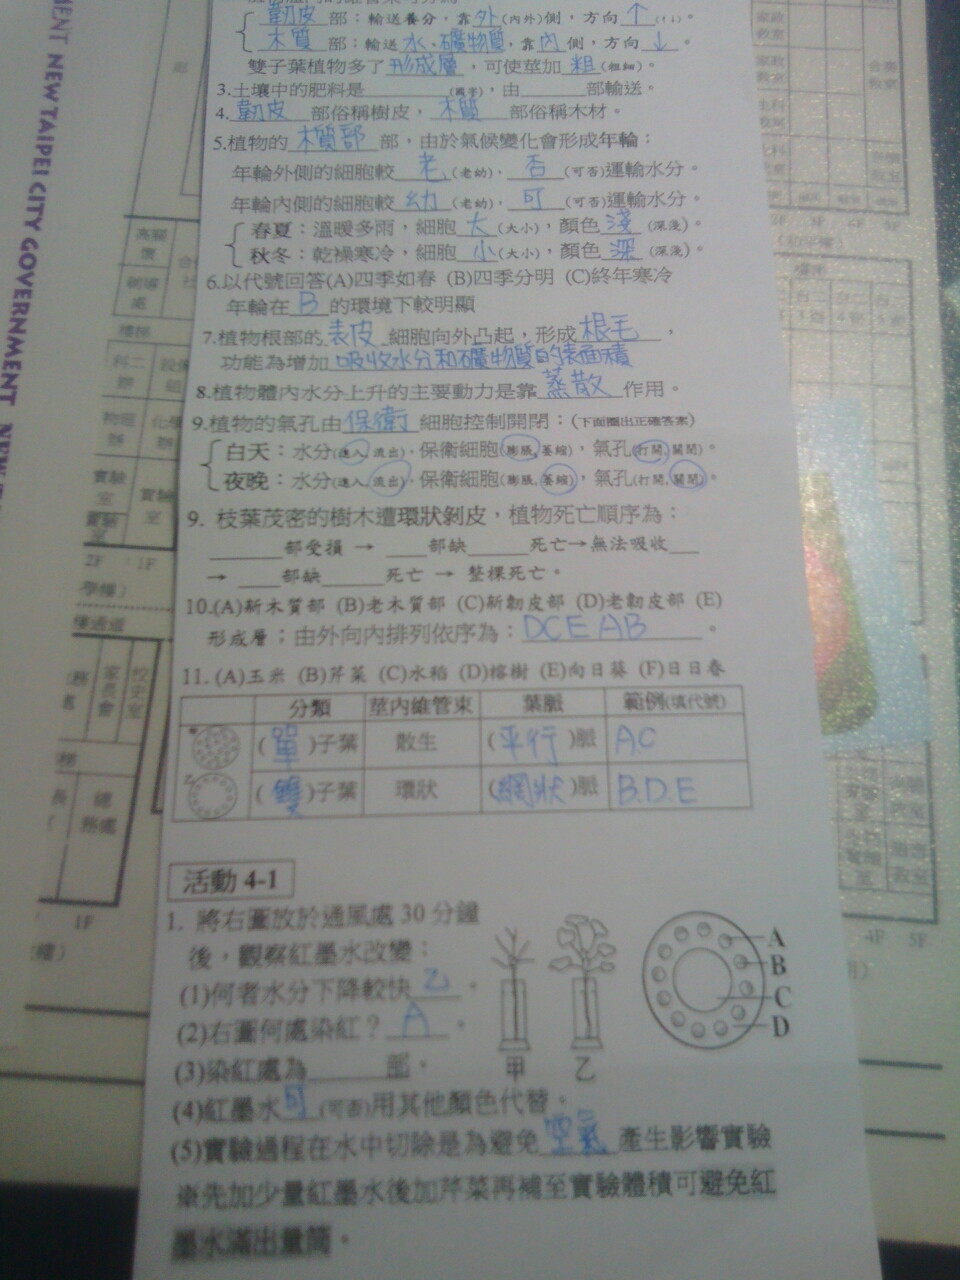 韌皮 部：輸送養分，靠外(內外)側，方向↑(↑↓)。
木質 部：輸送水、礦物質，靠內側，方向↓。
雙子葉植物多了形成層，可使莖加粗(粗細)。
3.土壤中的肥料是______，由______部輸送。
4.韌皮部俗稱樹皮，木質部俗稱木材。
5.植物的木質部部，由於氣候變化會形成年輪：
年輪外側的細胞較老(老幼)，否(可否)運輸水分。
年輪內側的細胞較幼(老幼)，可(可否)運輸水分。
春夏：溫暖多雨，細胞大(大小)，顏色淺(深淺)。
秋冬：乾燥寒冷，細胞小(大小)，顏色深(深淺)。
6.以代號回答(A)四季如春 (B)四季分明 (C)終年寒冷
年輪在 B 的環境下較明顯
7.植物根部的表皮細胞向外凸起，形成根毛，
功能為增加吸收水分和礦物質的表面積
8.植物體內水分上升的主要動力是靠蒸散作用。
9.植物的氣孔由保衛細胞控制開閉：(下面圈出正確答案)
白天：水分(進入,流出)，保衛細胞(膨脹,萎縮)，氣孔(打開,關閉)。
夜晚：水分(進入,流出)，保衛細胞(膨脹,萎縮)，氣孔(打開,關閉)。
9. 枝葉茂密的樹木遭環狀剝皮，植物死亡順序為：
______部受損 → ___部缺_____死亡→無法吸收___
→ ___部缺_____死亡 → 整棵死亡。
10.(A)新木質部 (B)老木質部 (C)新韌皮部 (D)老韌皮部 (E)
形成層；由外向內排列依序為：DCEAB。
11. (A)玉米 (B)芹菜 (C)水稻 (D)榕樹 (E)向日葵 (F)日日春
分類 莖內維管束 葉脈 範例(填代號)
(單)子葉 散生 (平行)脈 A.C
(雙)子葉 環狀 (網狀)脈 B.D.E
活動 4-1
1. 將右圖放於通風處 30 分鐘
後，觀察紅墨水改變：
(1)何者水分下降較快 乙。
(2)右圖何處染紅？ A。
(3)染紅處為______部。
(4)紅墨水可(可否)用其他顏色代替。
(5)實驗過程在水中切除是為避免空氣產生影響實驗
※先加少量紅墨水後加芹菜再補至實驗體積可避免紅
墨水滿出量筒。
甲 乙
A
B
C
D
NEW TAIPEI CITY GOVERNMENT
2F 1F
1F
4F 5F